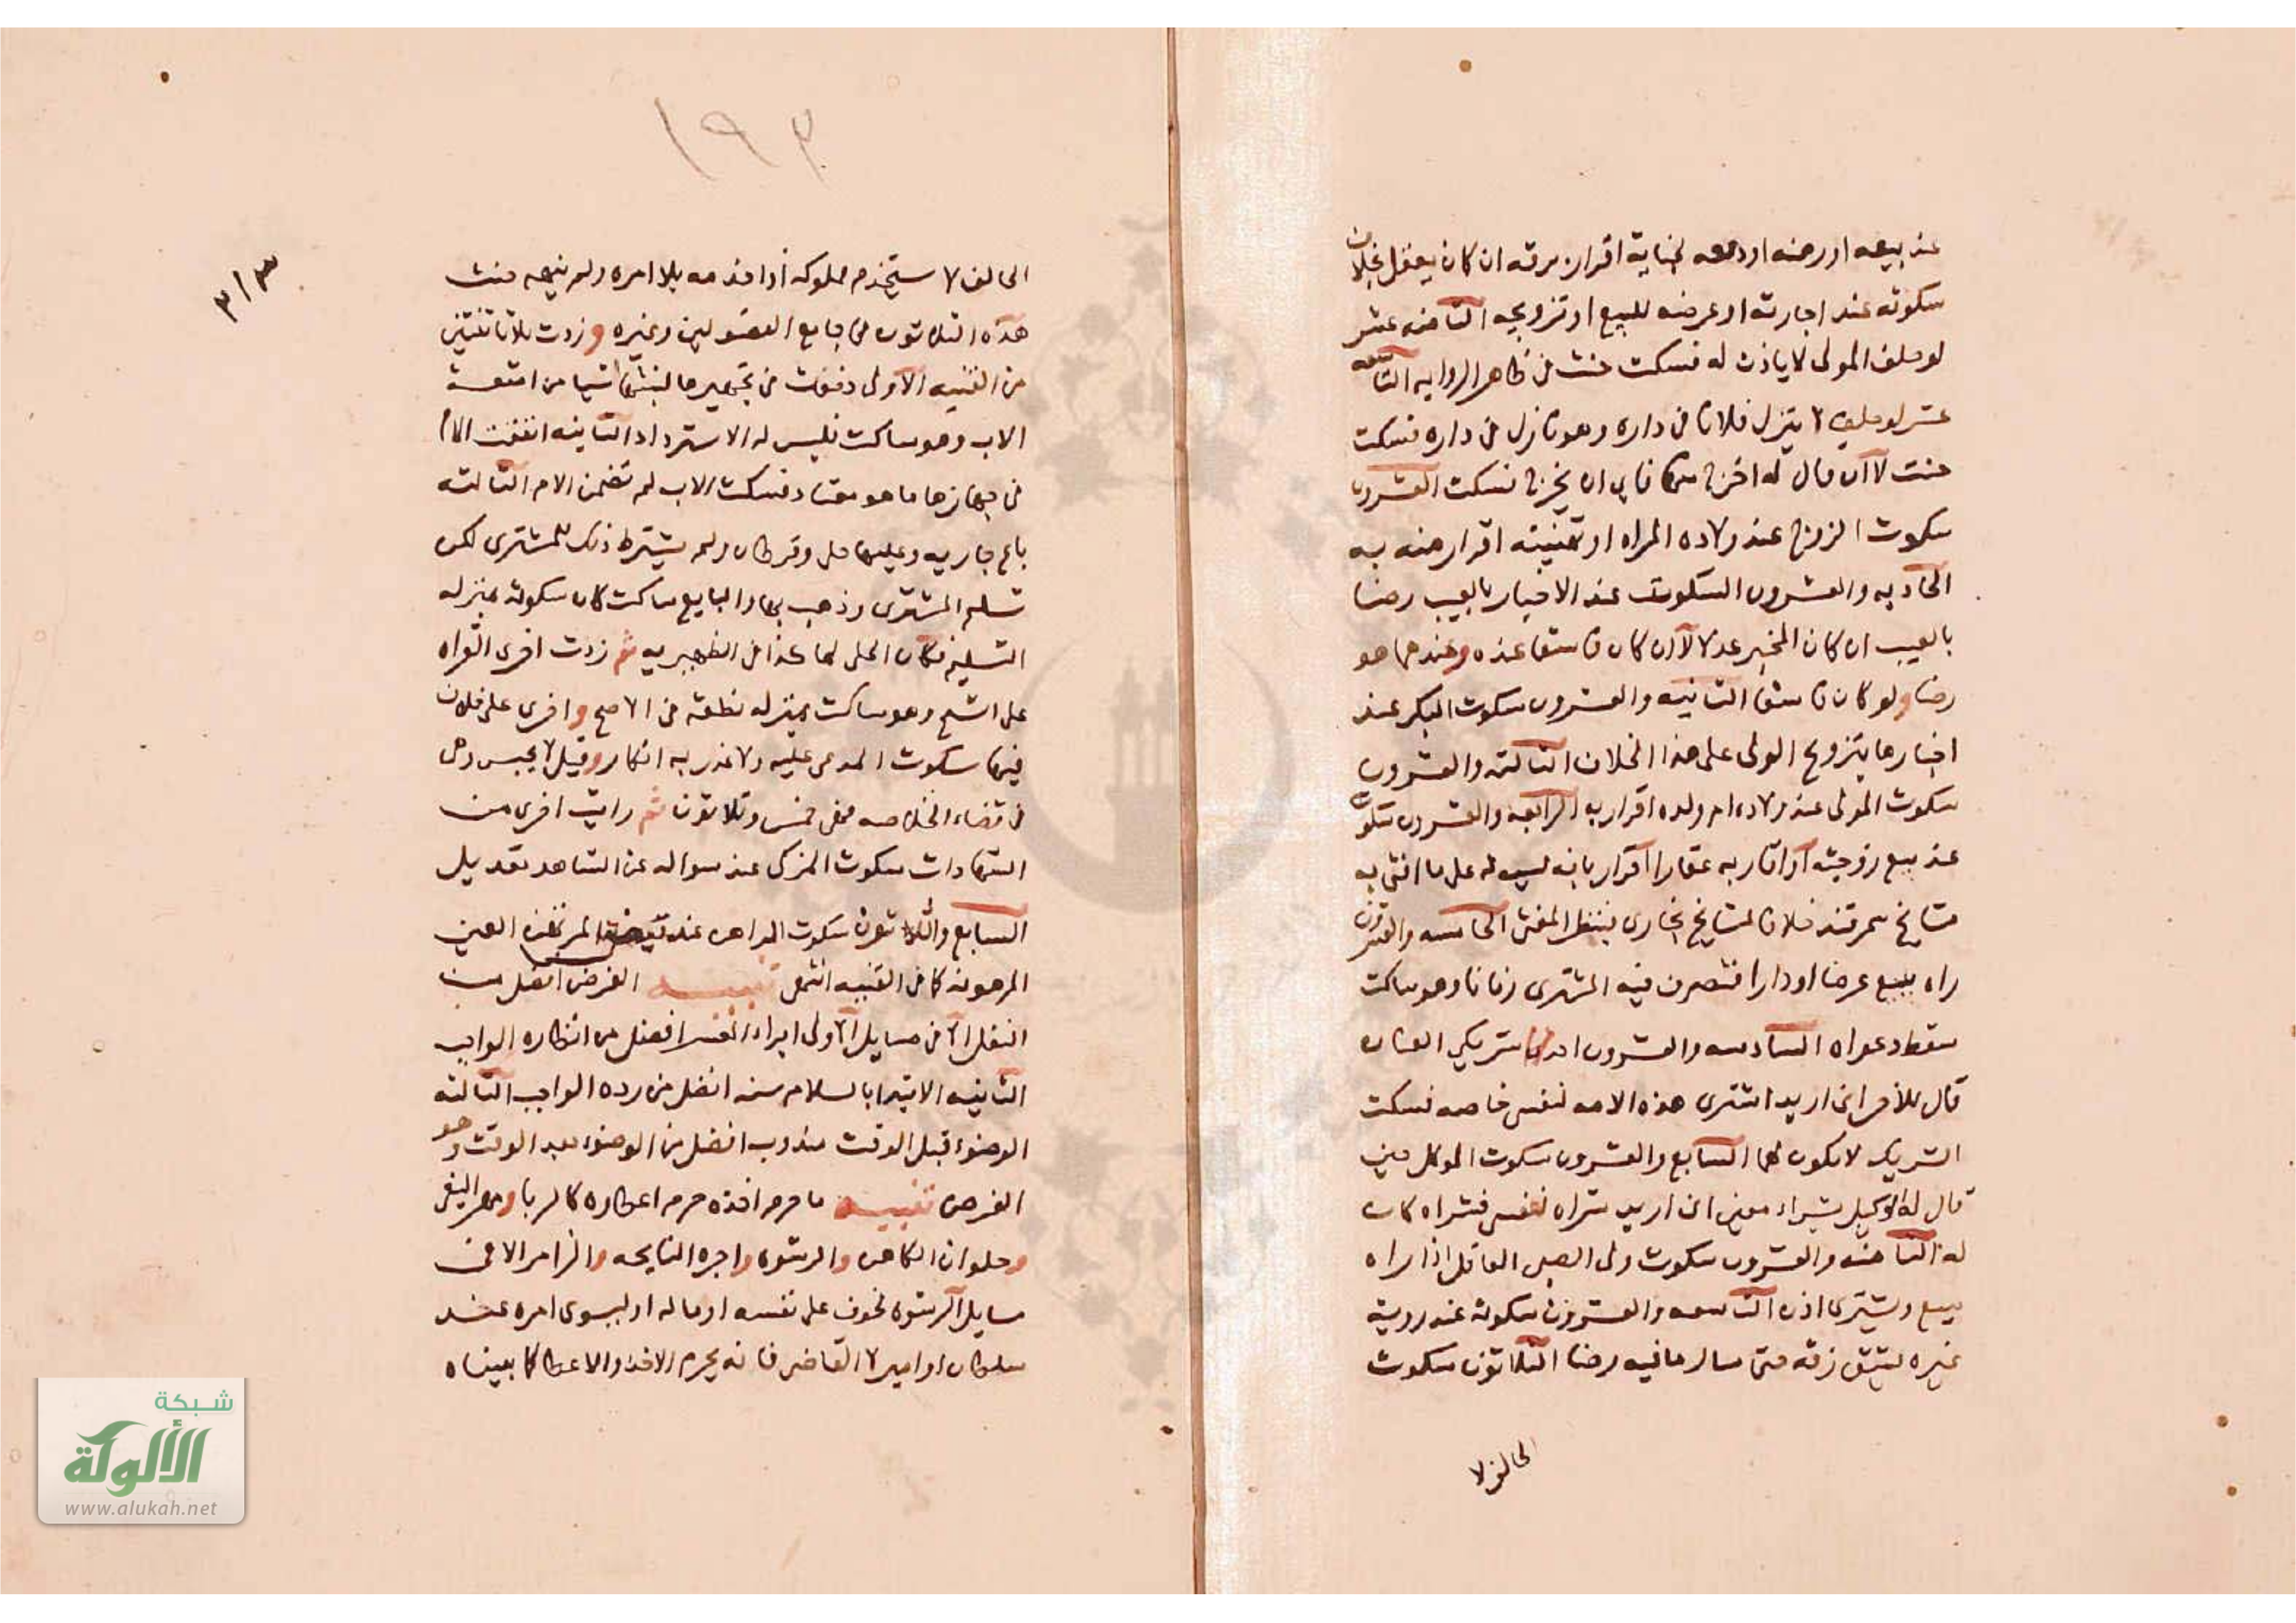 عند بيعه او رهنه او دفعه بجناية اقرار برقه ان كان يعقل بخلاف
سكوته عند اجارته او عرضه للبيع او تزويجه الثامنه عشر
لو حلف المولى لا ياذن له فسكت حنث في ظاهر الروايه التاسعه
عشر لو حلف لا ينزل فلانا في داره وهو نازل في داره فسكت
حنث لا ان قال له اخرج منها فابى ان يخرج فسكت العشرون
سكوت الزوج عند ولاده المراه او تهنيته اقرار منه به
الحاديه والعشرون السكوت عند الاخبار بالعيب رضا
بالعيب ان كان المخبر عدلا لا ان كان فاسقا عنده وعندهما هو
رضا ولو كان فاسقا الثانيه والعشرون سكوت البكر عند
اخبارها بتزويج الولى على هذا الخلاف الثالثه والعشرون
سكوت المولى عند ولاده ام ولده اقرار به الرابعه والعشرون سكوت
عند بيع زوجته او اقاربه عقارا اقرار بانه ليس له على ما افتى به
مشايخ سمرقند خلافا لمشايخ بخارى فينظر المفتى الخامسه والعشرون
راه يبيع عرضا او دارا فتصرف فيه المشترى زمانا وهو ساكت
سقط دعواه السادسه والعشرون احد شريكى العنان
قال للآخر انى اريد اشترى هذه الامه لنفسى خاصه فسكت
الشريك لا تكون لهما السابع والعشرون سكوت الموكل حين
قال له الوكيل بشراء معين انى اريد شراه لنفسى فشراه كان
له الثامنه والعشرون سكوت ولى الصبى العاقل اذا راه
يبيع ويشترى اذن التاسعه والعشرون سكوته عند رويه
غيره يشق زقه حتى سال ما فيه رضا الثلاثون سكوت
الحالف لا
١٩٣
٣/٣
الحالف لا يستخدم مملوكه اذا خدمه بلا امره ولم ينهه حنث
هذه الثلاثون في جامع الفصولين وغيره وزدت ثلاثا ثنتين
من القنيه الاولى دفعت في تجهيزها لبنتها اشيا من امتعه
الاب وهو ساكت فليس له الاسترداد الثانيه انفقت الام
في جهازها ما هو معتاد فسكت الاب لم تضمن الام الثالثه
باع جاريه وعليها حلى وقرطان ولم يشترط ذلك للمشترى لكن
تسلم المشترى وذهب بها والبايع ساكت كان سكوته بمنزله
التسليم فكان الحلى لها كذا في الظهيريه ثم زدت اخرى القراه
على الشيخ وهو ساكت بمنزله نطقه في الاصح واخرى على خلاف
فيها سكوت المدعى عليه ولا عذر به انكار وقيل لا يحبس وهى
في قضاء الخلاصه فهى خمس وثلاثون ثم رايت اخرى من
الشهادات سكوت المزكى عند سواله عن الشاهد تعديل
السابع والثلاثون سكوت الراهن عند المرتهن العين
المرهونه كما في القنيه انتهى تنبيه الفرض افضل من
النفل الا في مسايل الاولى ابراء المعسر افضل من انظاره الواجب
الثانيه الابتدا بالسلام سنه افضل من رده الواجب الثالثه
الوضوء قبل الوقت مندوب افضل من الوضوء بعد الوقت وهو
الفرض تنبيه ما حرم اخذه حرم اعطاوه كالربا ومهر البغى
وحلوان الكاهن والرشوه واجره النايحه والزامر الا في
مسايل الرشوه لخوف على نفسه او ماله او ليسوى امره عند
سلطان او امير لا القاضى فانه يحرم الاخذ والاعطا كما بيناه
شبكة
الألوكة
www.alukah.net